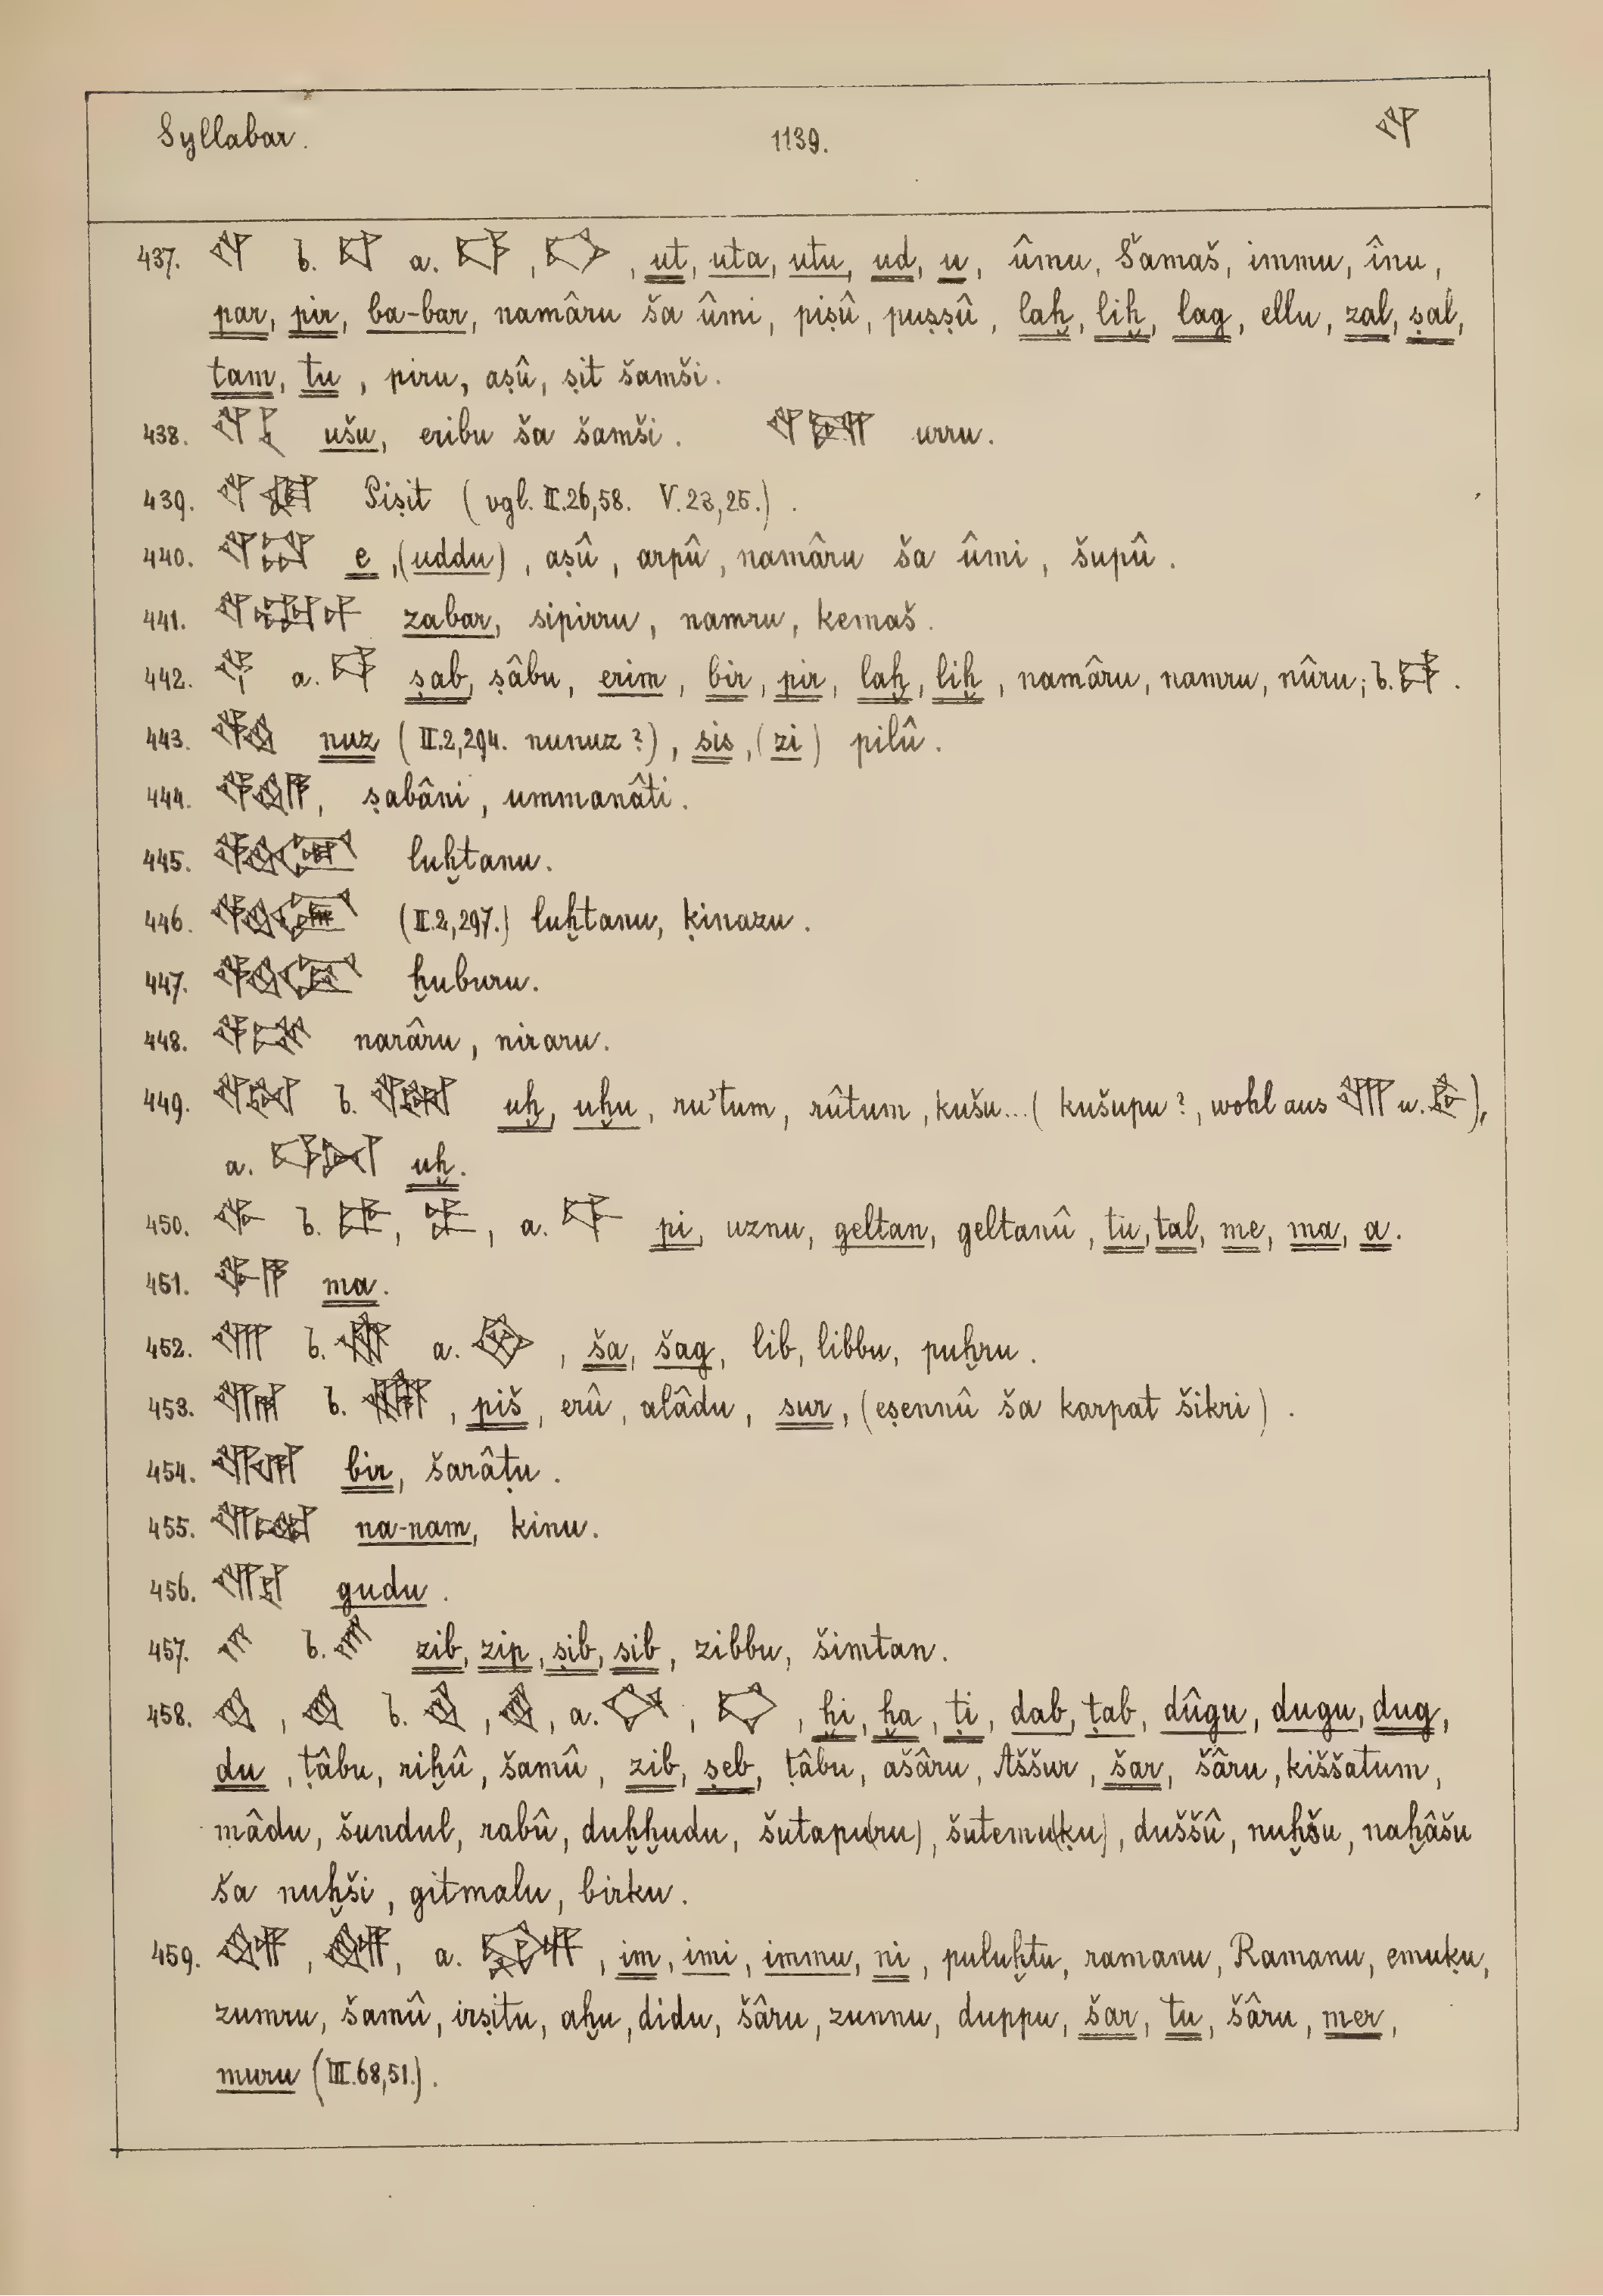 Syllabar. 1139. 𒌓
437. 𒌓 b. a. , , ut, uta, utu, ud, u, ûmu, Šamaš, immu, înu,
par, pir, ba-bar, namâru ša ûmi, piṣû, puṣṣû, laḫ, liḫ, lag, ellu, zal, ṣal,
tam, tu, piru, aṣû, ṣit šamši.
438. ušu, eribu ša šamši. urru.
439. Piṣit (vgl. II.26,58. V.23,25.).
440. e, (uddu), aṣû, arpû, namâru ša ûmi, šupû.
441. zabar, sipirru, namru, kemaš.
442. a. ṣab, ṣâbu, erim, bir, pir, laḫ, liḫ, namâru, namru, nûru; b. .
443. nuz (II.2,294. nunuz?), sis, (zi) pilû.
444. , ṣabâni, ummanâti.
445. luḫtanu.
446. (II.2,297.) luḫtanu, ḳinazu.
447. ḫuburu.
448. narâru, niraru.
449. b. uḫ, uḫu, ru'tum, rûtum, kušu...( kušupu?, wohl aus u. ),
a. uḫ.
450. b. , , a. pi, uznu, geltan, geltanû, tu, tal, me, ma, a.
451. ma.
452. b. a. , ša, šag, lib, libbu, puḫru.
453. b. , piš, erû, alâdu, sur, (eṣennû ša karpat šikri).
454. bir, šarâṭu.
455. na-nam, kinu.
456. gudu.
457. b. zib, zip, ṣib, sib, zibbu, šimtan.
458. , b. , , a. , , ḫi, ḫa, ṭi, dab, ṭab, dûgu, dugu, dug,
du, ṭâbu, riḫû, šamû, zib, ṣeb, ṭâbu, ašâru, Aššur, šar, šâru, kiššatum,
mâdu, šundul, rabû, duḫḫudu, šutapu(ru), šutemu(ḳu), duššû, nuḫšu, naḫâšu
ša nuḫši, gitmalu, birku.
459. , , a. , im, imi, immu, ni, puluḫtu, ramanu, Ramanu, emuḳu,
zumru, šamû, irṣitu, aḫu, didu, šâru, zunnu, duppu, šar, tu, šâru, mer,
muru (III.68,51.).